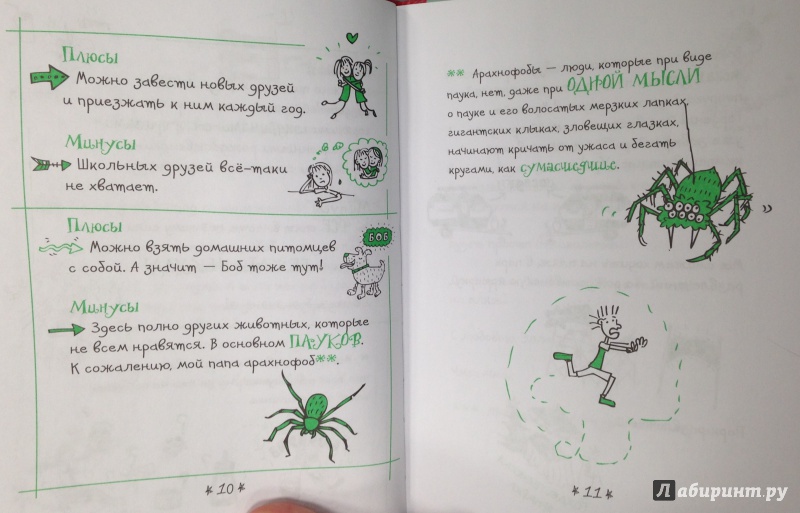 Плюсы
Можно завести новых друзей
и приезжать к ним каждый год.
Минусы
Школьных друзей всё-таки
не хватает.
Плюсы
Можно взять домашних питомцев
с собой. А значит — Боб тоже тут!
БОБ
Минусы
Здесь полно других животных, которые
не всем нравятся. В основном ПАУКОВ.
К сожалению, мой папа арахнофоб**.
* 10 *
** Арахнофобы — люди, которые при виде
паука, нет, даже при ОДНОЙ МЫСЛИ
о пауке и его волосатых мерзких лапках,
гигантских клыках, зловещих глазках,
начинают кричать от ужаса и бегать
кругами, как сумасшедшие.
* 11 *
Лабиринт.ру